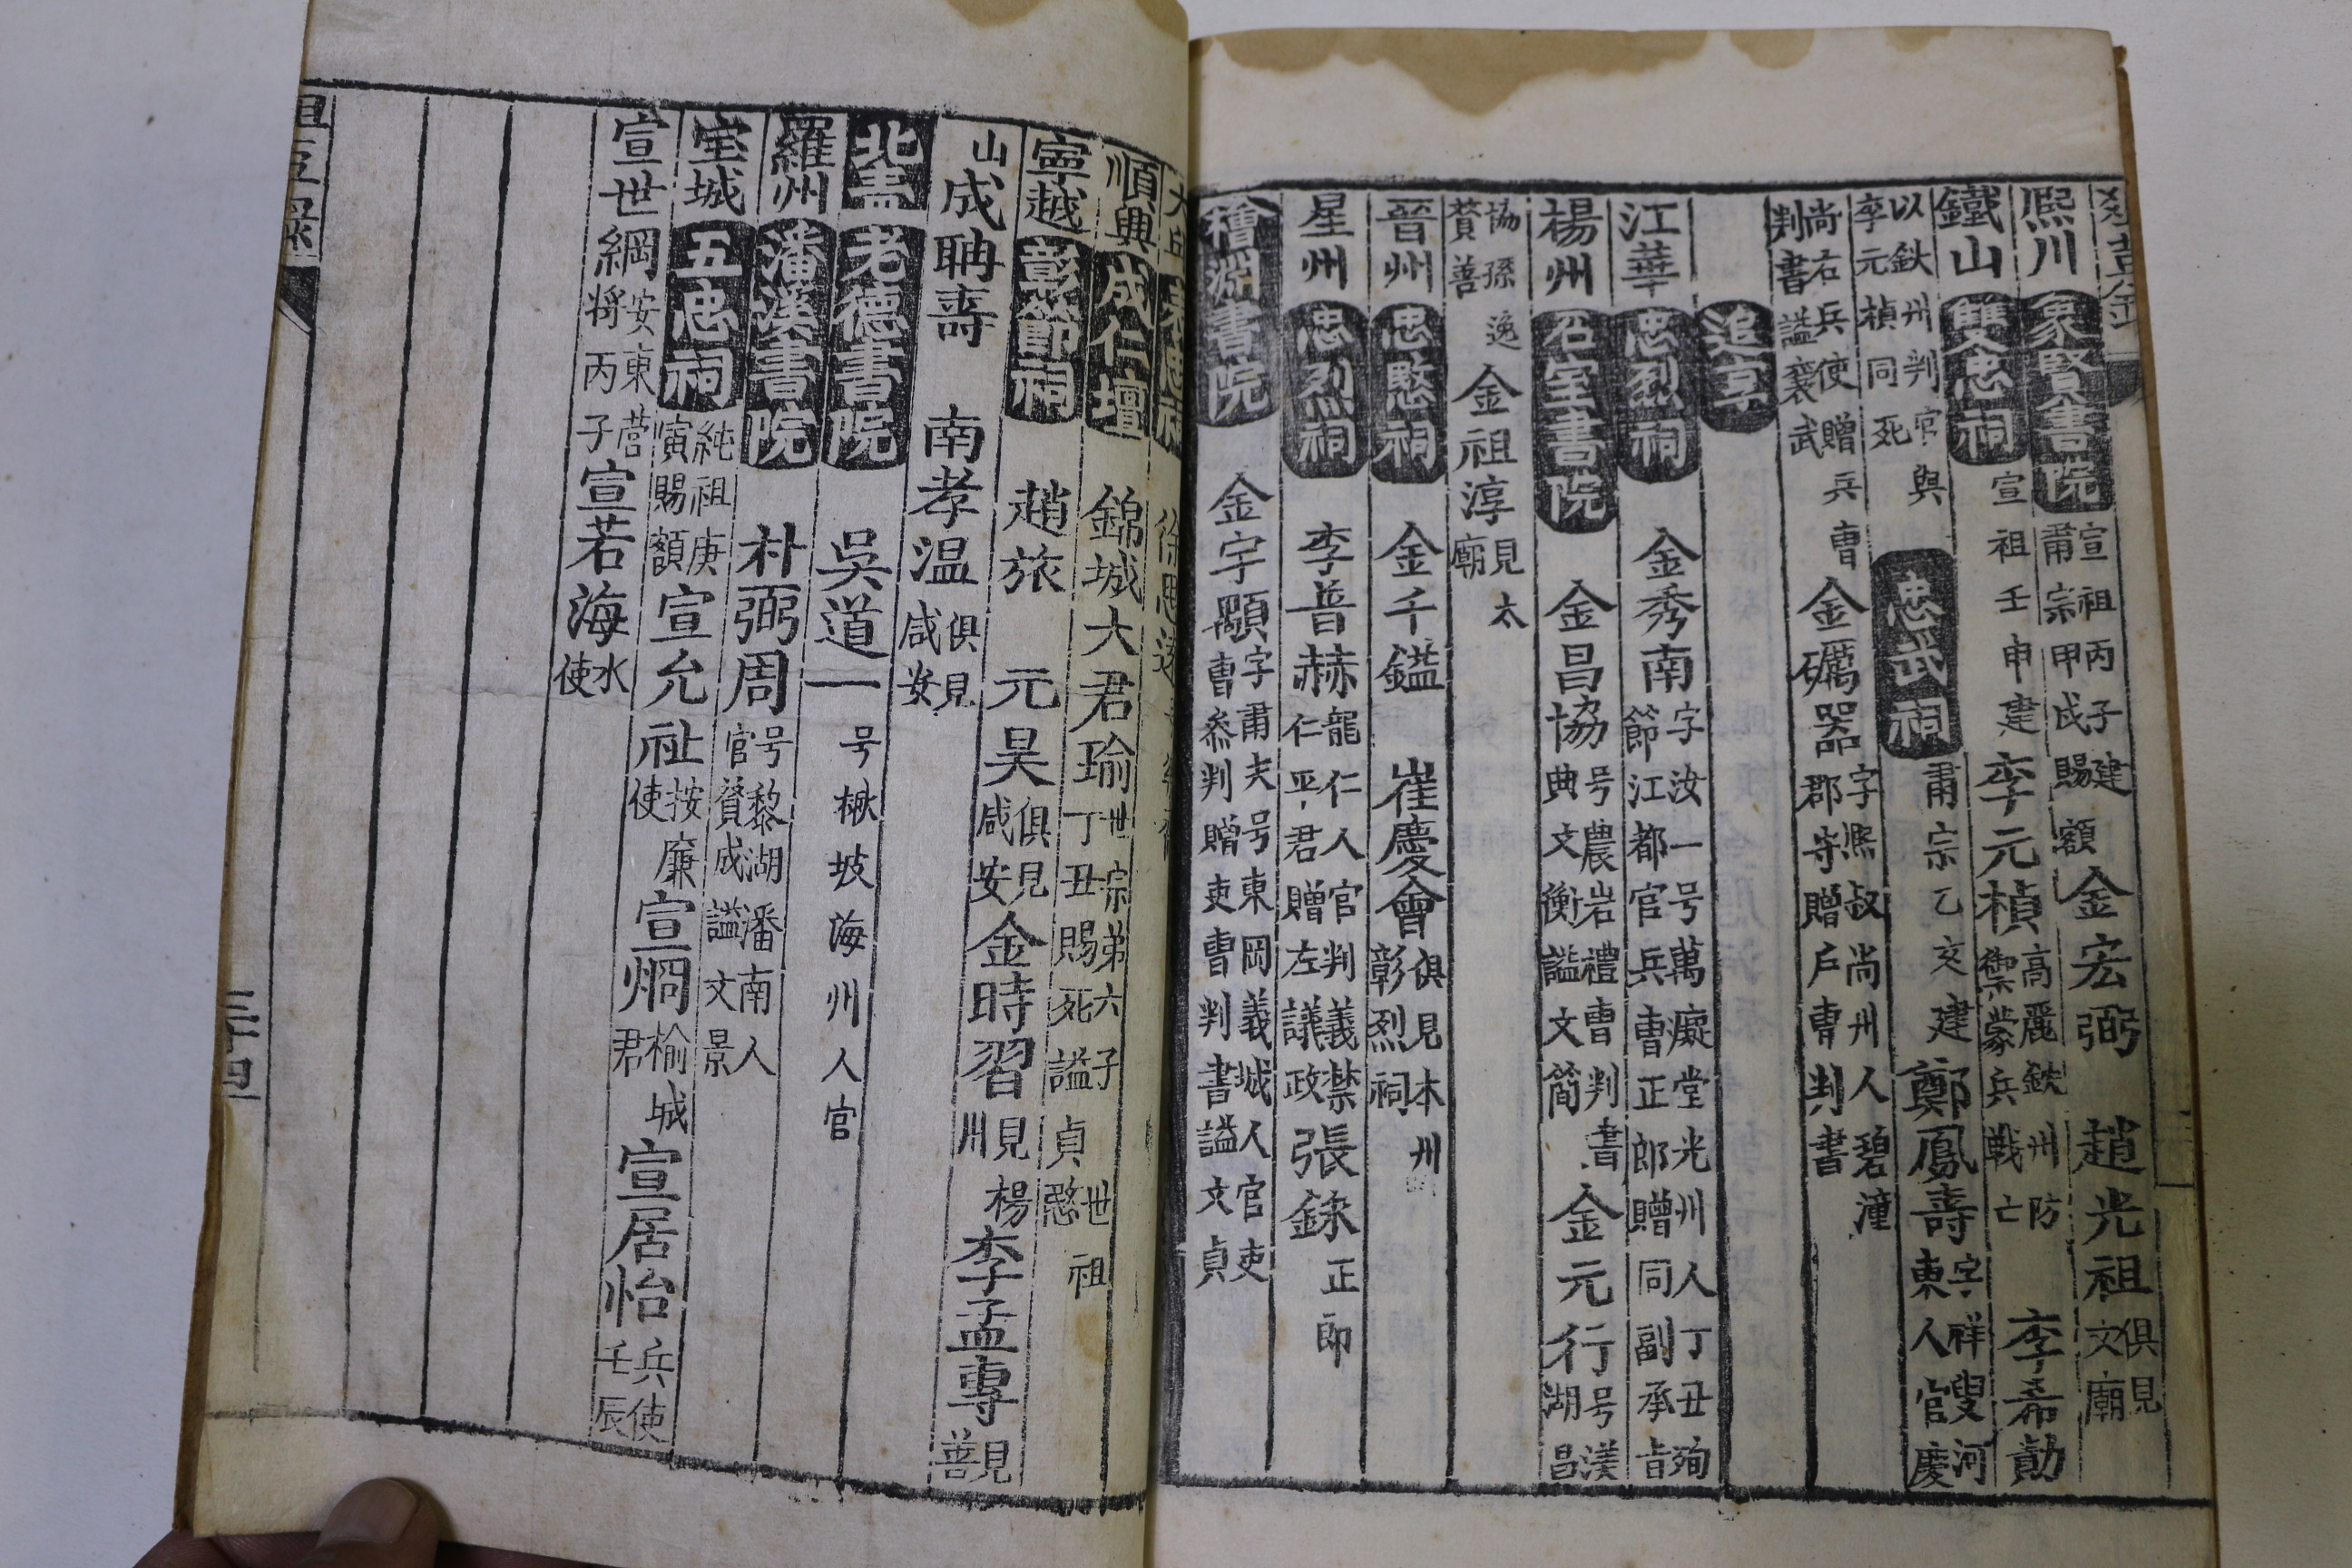 熈川 象賢書院 宣祖丙子建肅宗甲戌賜額 金宏弼 趙光祖 俱見文廟
鐵山 雙忠祠 宣祖壬申建 李元楨 高麗鈥州防禦蒙兵戰亡 李希勣
以鈥州判官與李元楨同死 忠武祠 肅宗乙亥建 鄭鳳壽 字祥叟河東人官慶
尚右兵使贈兵曹判書謚襄武 金礪器 字熈叔尚州人碧潼郡守贈戶曹判書
追享
江華 忠烈祠 金秀南 字汝一号萬癡堂光州人丁丑殉節江都官兵曹正郎贈同副承旨
楊州 石室書院 金昌協 号農岩禮曹判書典文衡謚文簡 金元行 号渼湖昌
協孫逸贊善 金祖淳 見太廟
晉州 忠愍祠 金千鎰 崔慶會 俱見本州彰烈祠
星州 忠烈祠 李普赫 龍仁人官判義禁仁平君贈左議政 張錄 正郎
書院 金宇顒 字肅夫号東岡義城人官吏曹參判贈吏曹判書謚文貞
順興 成仁壇 錦城大君瑜 世宗弟六子世祖丁丑賜死謚貞愍
寧越 彰節祠 趙旅 元昊 俱見咸安 金時習 見楊州 李孟專 見善
山 成聃壽 南孝温 俱見咸安
北 老德書院 吳道一 号楸坡海州人官
羅州 潘溪書院 朴弼周 号黎湖潘南人官贊成謚文景
宝城 五忠祠 純祖庚寅賜額 宣允祉 按廉使 宣烱 榆城君 宣居怡 兵使壬辰
宣世綱 安東營將丙子 宣若海 水使
三十四